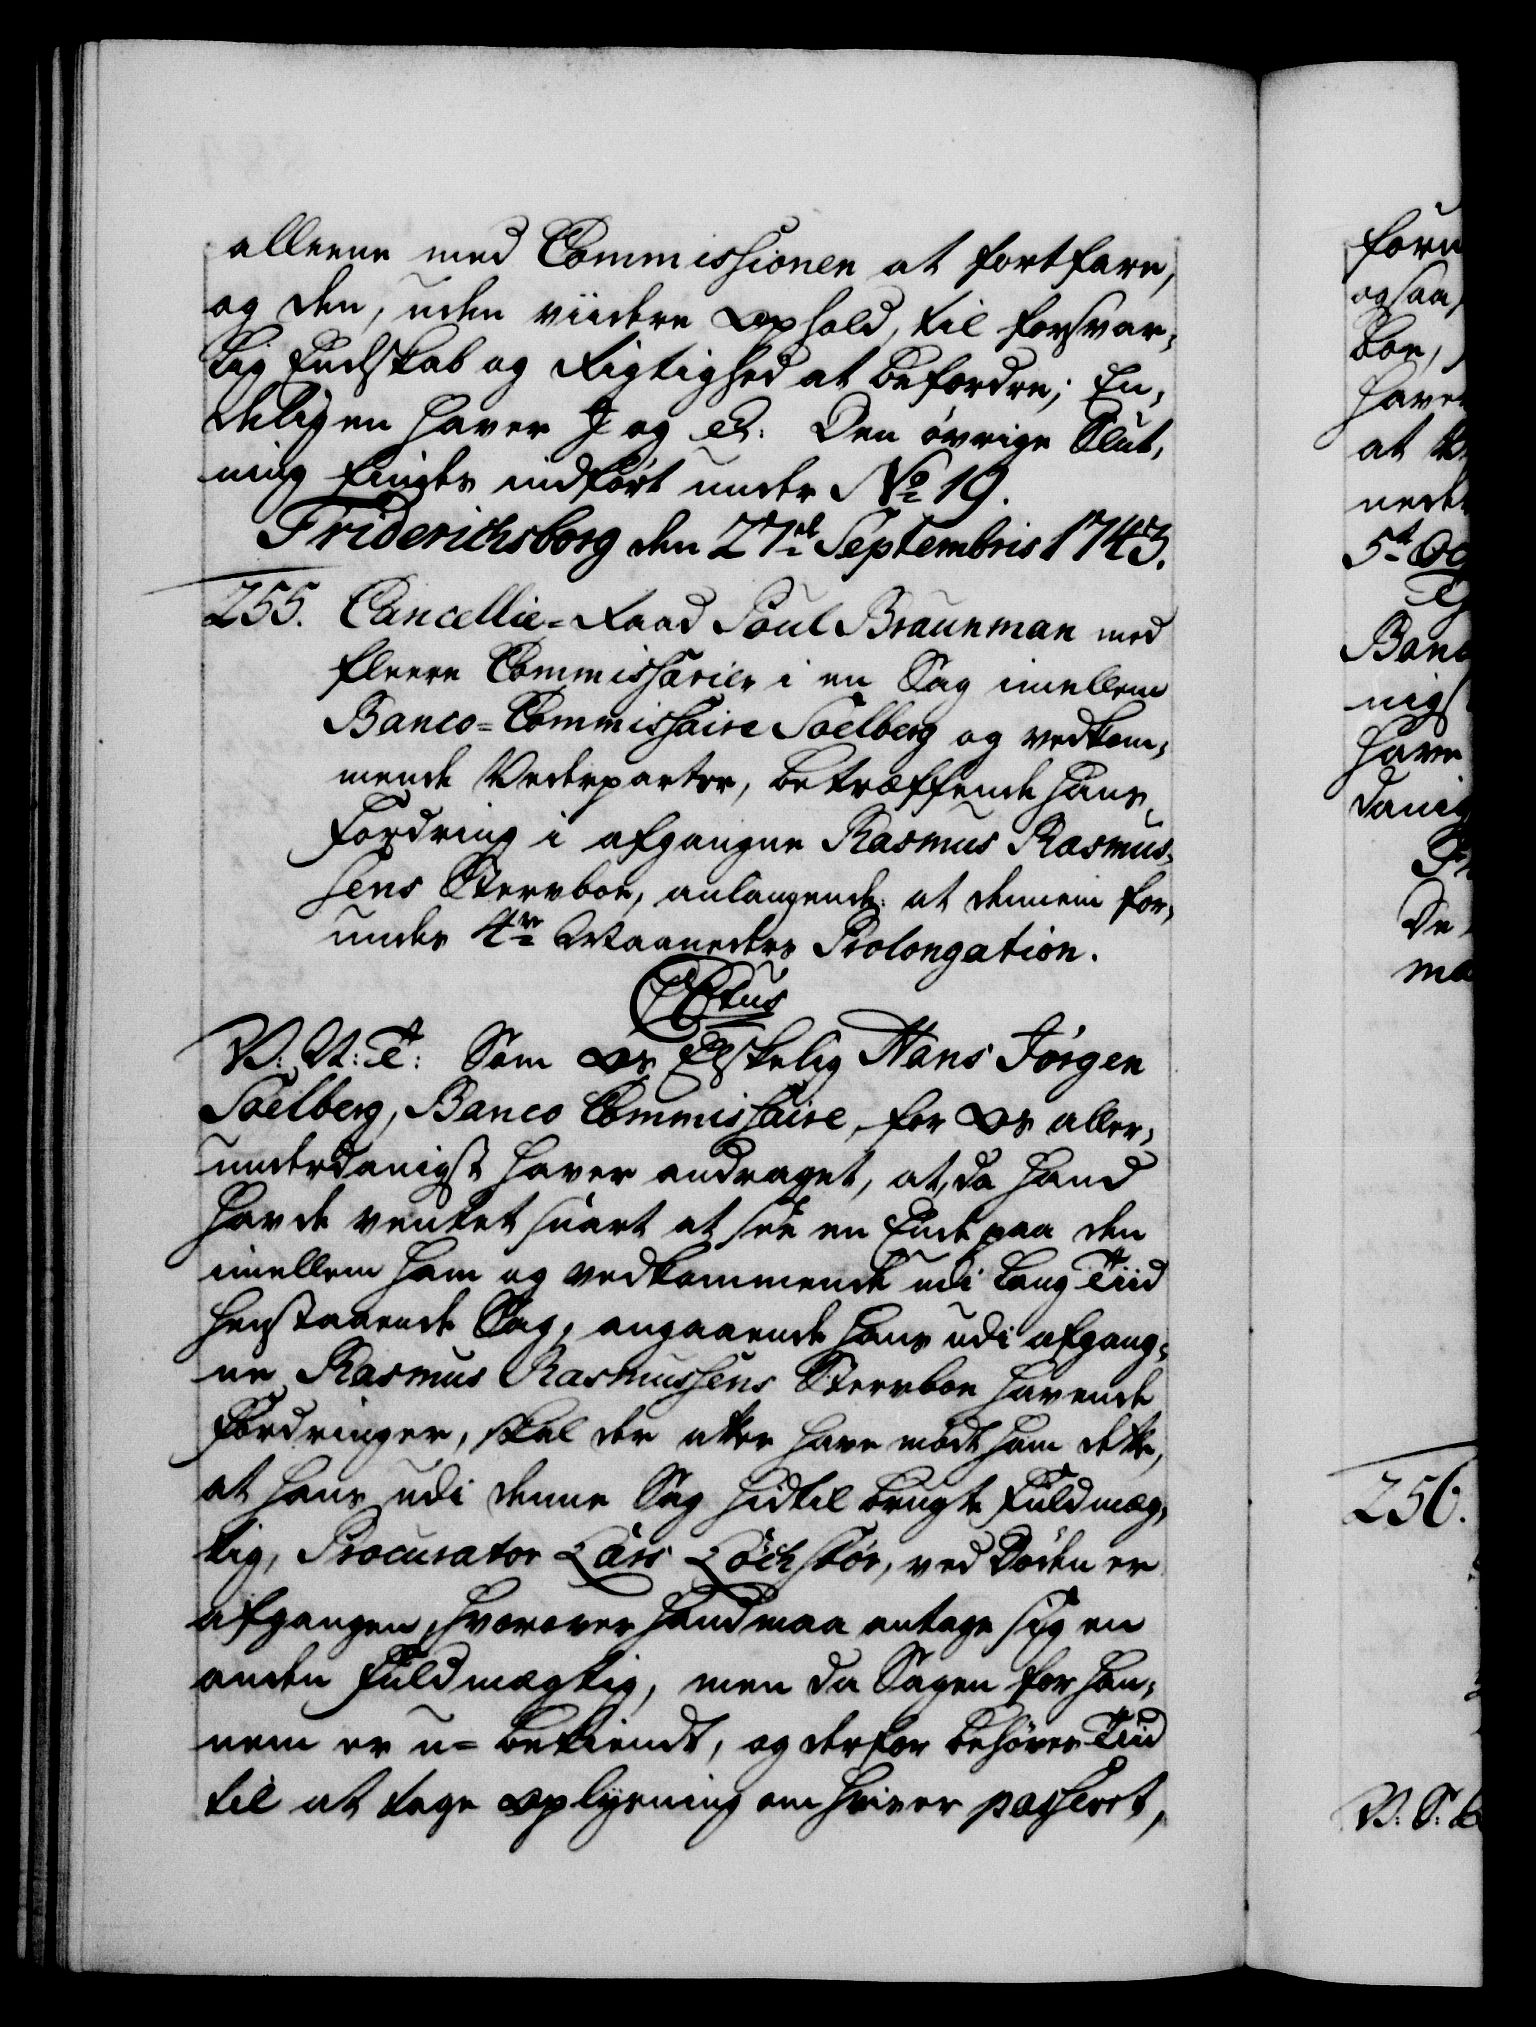 alleene med Commissionen at fortfare,
og den, uden viidere Ophold, til forsvar-
lig Endskab og Rigtighed at befordre; En-
deligen haver I og etc. Den øvrige Slut-
ning findes indført under No 19.
Friderichsborg den 27de Septembris 1743.
255. Cancellie-Raad Poul Braunman med
fleere Commissarier i en Sag imellem
Banco-Commissaire Soelberg og vedkom-
mende Vederparter, betræffende hans
Fordring i afgangne Rasmus Rasmus-
sens Sterboe, anlangende: at dennem for-
undes 4re Maaneders Prolongation.
C6tus
V: A: T: Som Os Elskelig Hans Jørgen
Soelberg, Banco Commissaire, for Os aller-
underdanigst haver andraget, at, da hand
havde ventet snart at see en Ende paa den
imellem ham og vedkommende udi lang Tiid
henstaaende Sag, angaaende hans udi afgang-
ne Rasmus Rasmussens Sterboe havende
Fordringer, skal der atter have mødt ham dette,
at hans udi denne Sag hidtil brugte Fuldmæg-
tig, Procurator Lars Löchstör, ved Døden er
afgangen, hvorover hand maa antage sig en
anden Fuldmægtig, men da Sagen for han-
nem er u-bekiendt, og derfor behøver Tiid
til at tage Oplysning om hvis er passeret,
forn
ogsaa
boe,
have
at
5t Oc
Banc
nigst
have
danig
De
256.
V: S: